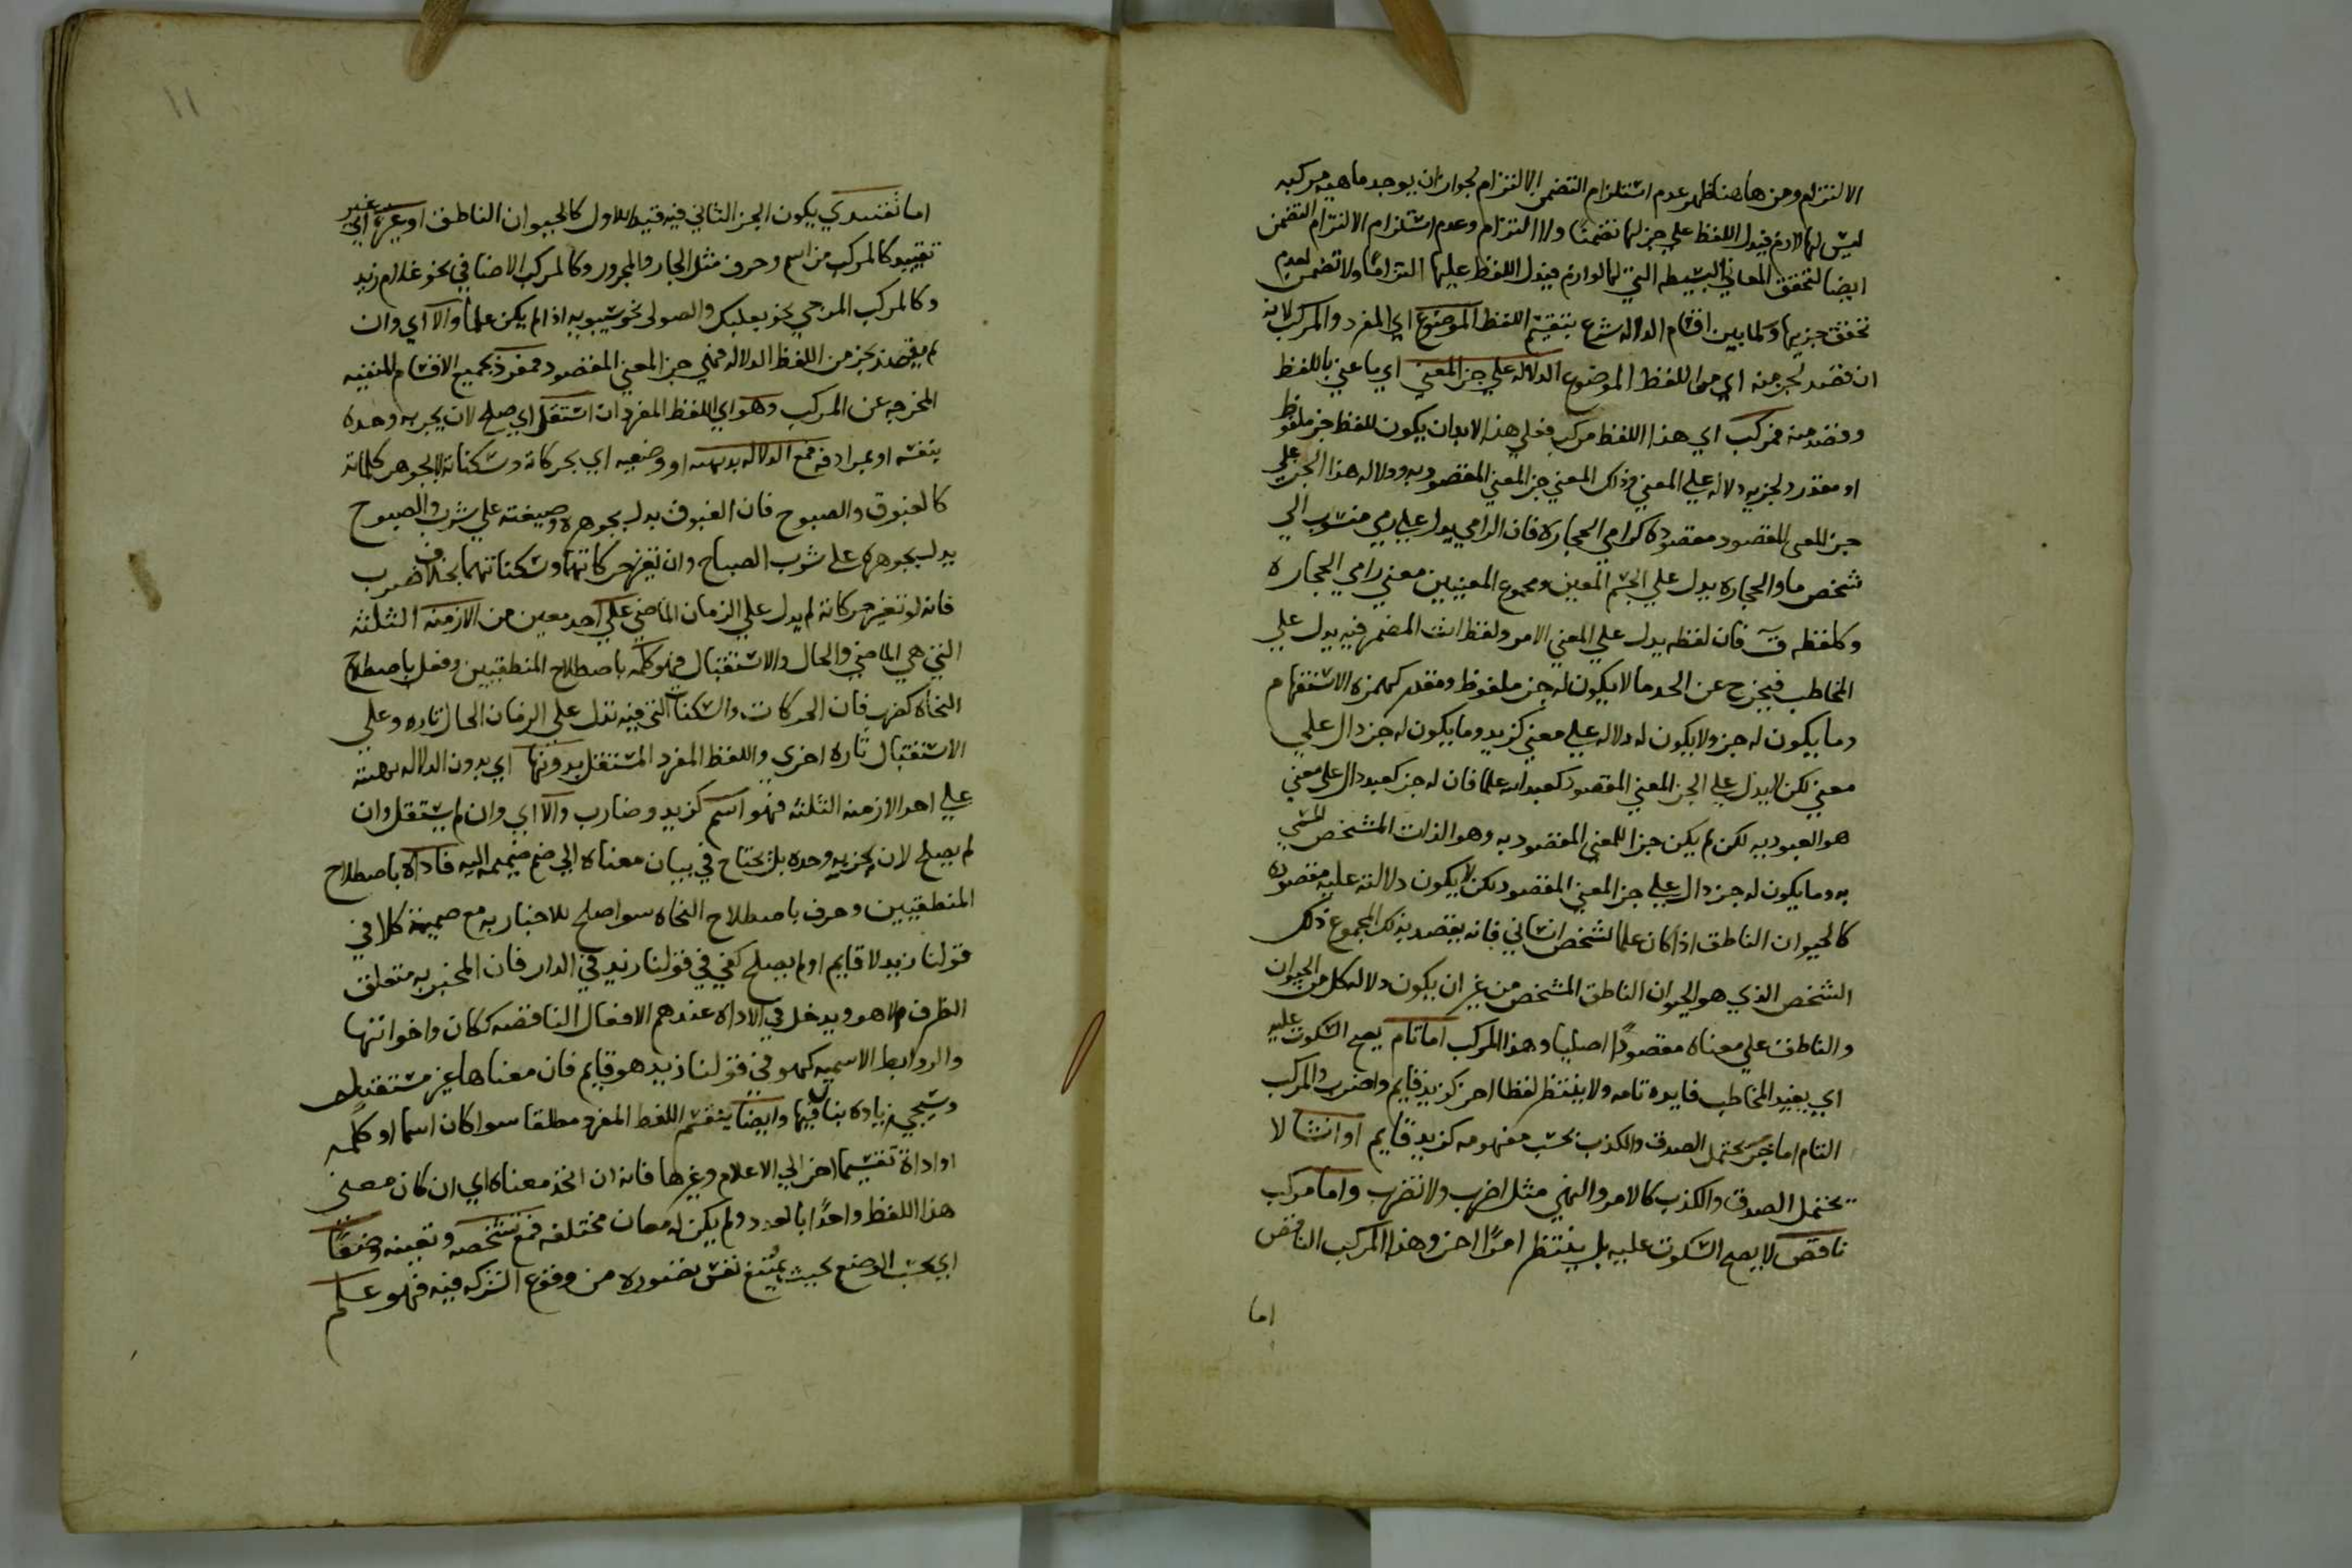 الالتزام ومن هاهنا ظهر عدم استلزام التضمن الالتزام لجواز ان يوجد ماهيه مركبه
ليس لها لازم فيدل اللفظ علي جزلها تضمنا ولا التزام وعدم استلزام الالتزام التضمن
ايضا لتحقق المعاني البسيطه التي لها لوازم فيدل اللفظ عليها التزاما ولا تضمن لعدم
تحقق جزيها ولما بين اقسام الداله شرع بتقسيم اللفظ الموضوع اي المفرد والمركب لانه
ان قصد لجز منه اي من اللفظ الموضوع الدلاله علي جز المعني اي ما عني باللفظ
وقصد منه فمركب اي هذا اللفظ مركب فعلي هذا لابد ان يكون للفظ جز ملفوظ
او مقدر ولجزيه دلاله علي المعني وذلك المعني جز المعني المقصود به ودلاله هذا الجز علي
جز المعني المقصود مقصوده كرامي الحجاره فان الرامي يدل علي رمي منسوب الي
شخص ما والحجاره يدل علي الجسم المعين ومجموع المعنيين معني رامي الحجاره
وكلفظه ق فان لفظه يدل علي المعني الامر ولفظ انت المضمر فيه يدل علي
المخاطب فيخرج عن الحد ما لا يكون له جز ملفوظ ومقدر كهمزه الاستفهام
وما يكون له جز ولا يكون له دلاله علي معني كزيد وما يكون له جز دال علي
معني لكن لا يدل علي الجز المعني المقصود كعبد الله علما فان له جز كعبد دال علي معني
هو العبوديه لكن لم يكن جزا للمعني المقصود به وهو الذات المشخص المسمي
به وما يكون له جز دال علي جز المعني المقصود لكن لا يكون دلالته عليه مقصوده
كالحيوان الناطق اذا كان علما لشخص انساني فانه يقصد بذلك المجموع ذلك
الشخص الذي هو الحيوان الناطق المشخص من غير ان يكون دلاله كل من الحيوان
والناطق علي معناه مقصودا اصليا وهذا المركب اما تام يصح السكوت عليه
اي يفيد المخاطب فايده تامه ولا ينتظر لفظا اخر كزيد قايم واضرب والمركب
التام اما خبر يحتمل الصدق والكذب بحسب مفهومه كزيد قايم او انشا لا
يحتمل الصدق والكذب كالامر والنهي مثل اضرب ولا تضرب واما مركب
ناقص لا يصح السكوت عليه بل ينتظر امرا اخر وهذا المركب الناقص
اما
١١
اما تقييدي يكون الجز الثاني فيه قيد اللاول كالحيوان الناطق او غيره اي غير
تقييد كالمركب من اسم وحرف مثل الجار والمجرور وكالمركب الاضافي نحو غلام زيد
وكالمركب المزجي نحو بعلبك والصوتي نحو سيبويه اذا لم يكن علما والا اي وان
لم يقصد بجز من اللفظ الدلاله علي جز المعني المقصود فمفرد بجميع الاقسام المنفيه
المخرجه عن المركب وهو اي اللفظ المفرد ان استقل اي صلح لان يخبر به وحده
بنفسه او بمرادفه فمع الدلاله بهيئته اي بحركاته وسكناته لا بجوهر كلماته
كالغبوق والصبوح فان الغبوق يدل بجوهره وصيغته علي شرب والصبوح
يدل بجوهره علي شرب الصباح وان تغير حركاتهما وسكناتهما بخلاف ضرب
فانه لو تغير حركاته لم يدل علي الزمان الماضي علي احد معين من الازمنه الثلثه
التي هي الماضي والحال والاستقبال فهو كلمه باصطلاح المنطقيين وفعل باصطلاح
النحاه كضرب فان الحركات والسكنات التي فيه تدل علي الزمان الحال تاره وعلي
الاستقبال تاره اخري واللفظ المفرد المستقل بدونها اي بدون الدلاله بهيئته
علي احد الازمنه الثلثه فهو اسم كزيد وضارب والا اي وان لم يستقل وان
لم يصلح لان يخبر به وحده بل يحتاج في بيان معناه الي ضم ضميمه اليه فاداه باصطلاح
المنطقيين وحرف باصطلاح النحاه سوا صلح للاخبار به مع ضميمة كلا في
قولنا زيد لا قايم او لم يصلح كفي في قولنا زيد في الدار فان المخبر به متعلق
الظرف لا هو ويدخل في الاداه عندهم الافعال الناقصه ككان واخواتها
والروابط الاسميه كهو في قولنا زيد هو قايم فان معناها غير مستقله
وسيجي زياده بيان فيها وايضا ينقسم اللفظ المفرد مطلقا سوا كان اسما او كلمه
او اداة تقسيما اخر الي الاعلام وغيرها فانه ان اتحد معناه اي ان كان معني
هذا اللفظ واحدا بالعدد ولم يكن له معان مختلفه فمع تشخصه وتعينه وضعا
اي بحسب الوضع بحيث يمنع نفس تصوره من وقوع الشركه فيه فهو علم